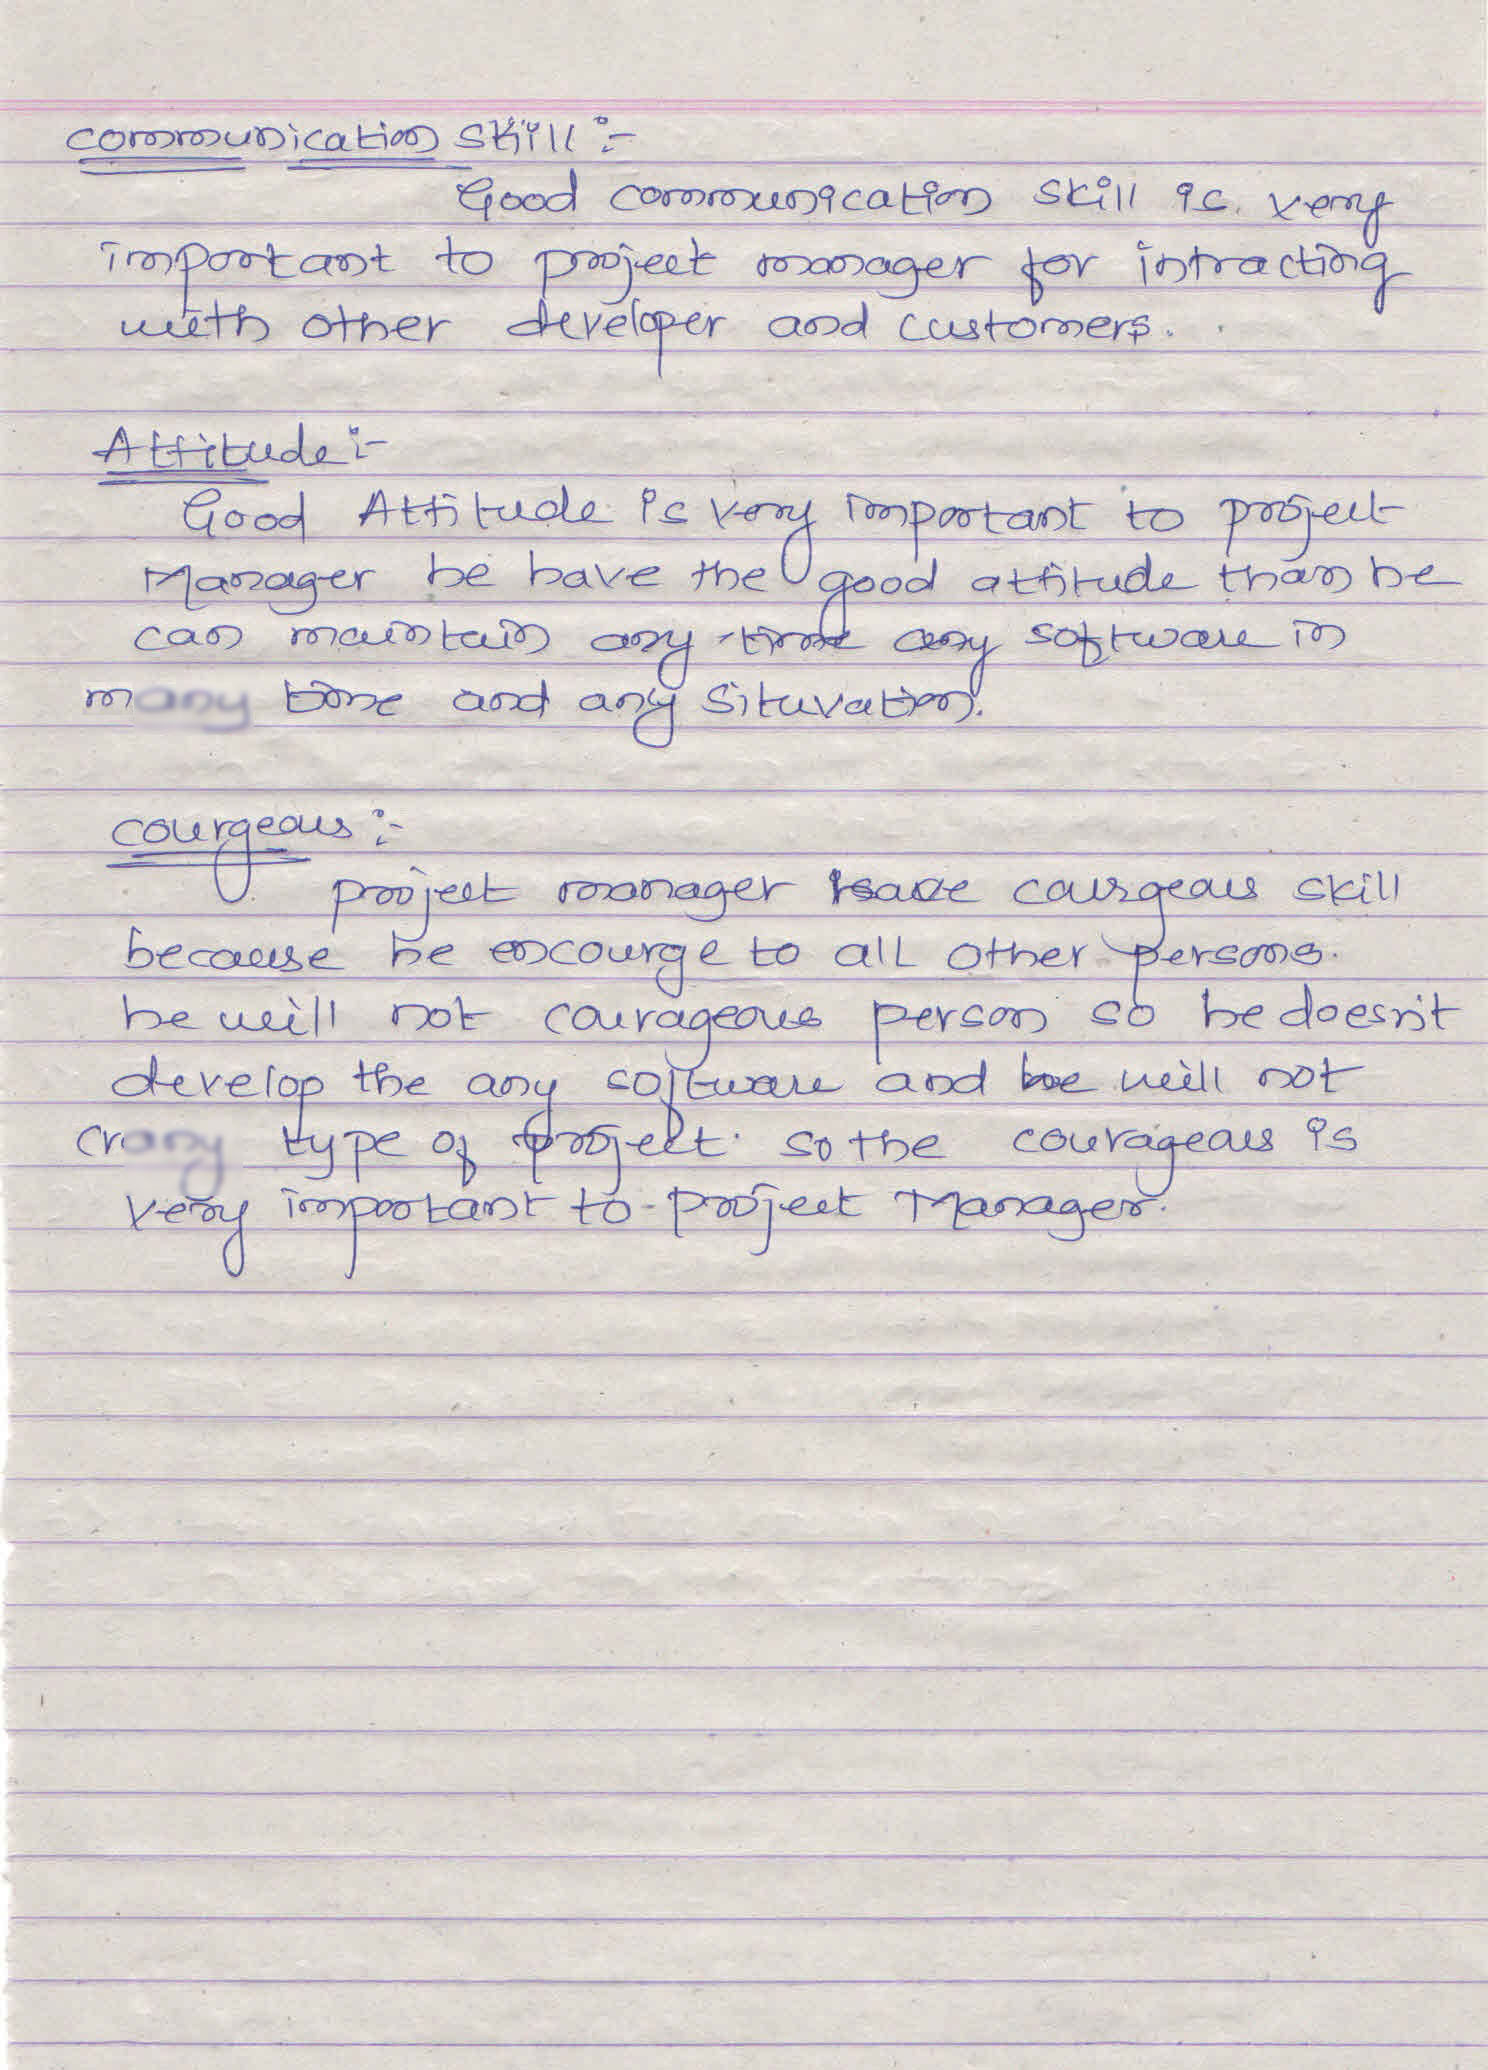 communication skill :-
Good communication skill is very
important to project manager for intracting
with other developer and customers.
Attitude :-
Good Attitude is very important to project
Manager he have the good attitude than he
can maintain any time any software in
time and any situvation.
courgeous :-
project manager have courgeous skill
because he encourge to all other persons.
he will not courageous person so he doesn't
develop the any software and he will not
type of project. so the courageous is
very important to project Manager.